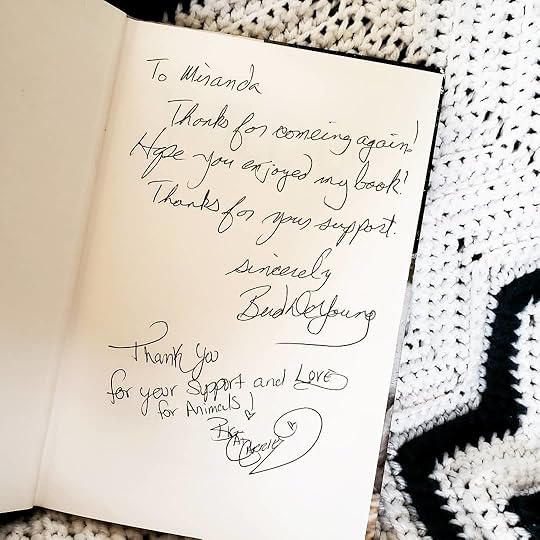 To Miranda
Thanks for comeing again!
Hope you enjoyed my book!
Thanks for your support.
sincerely
Bud DeYoung
Thank You
for your Support and LOVE
for Animals!